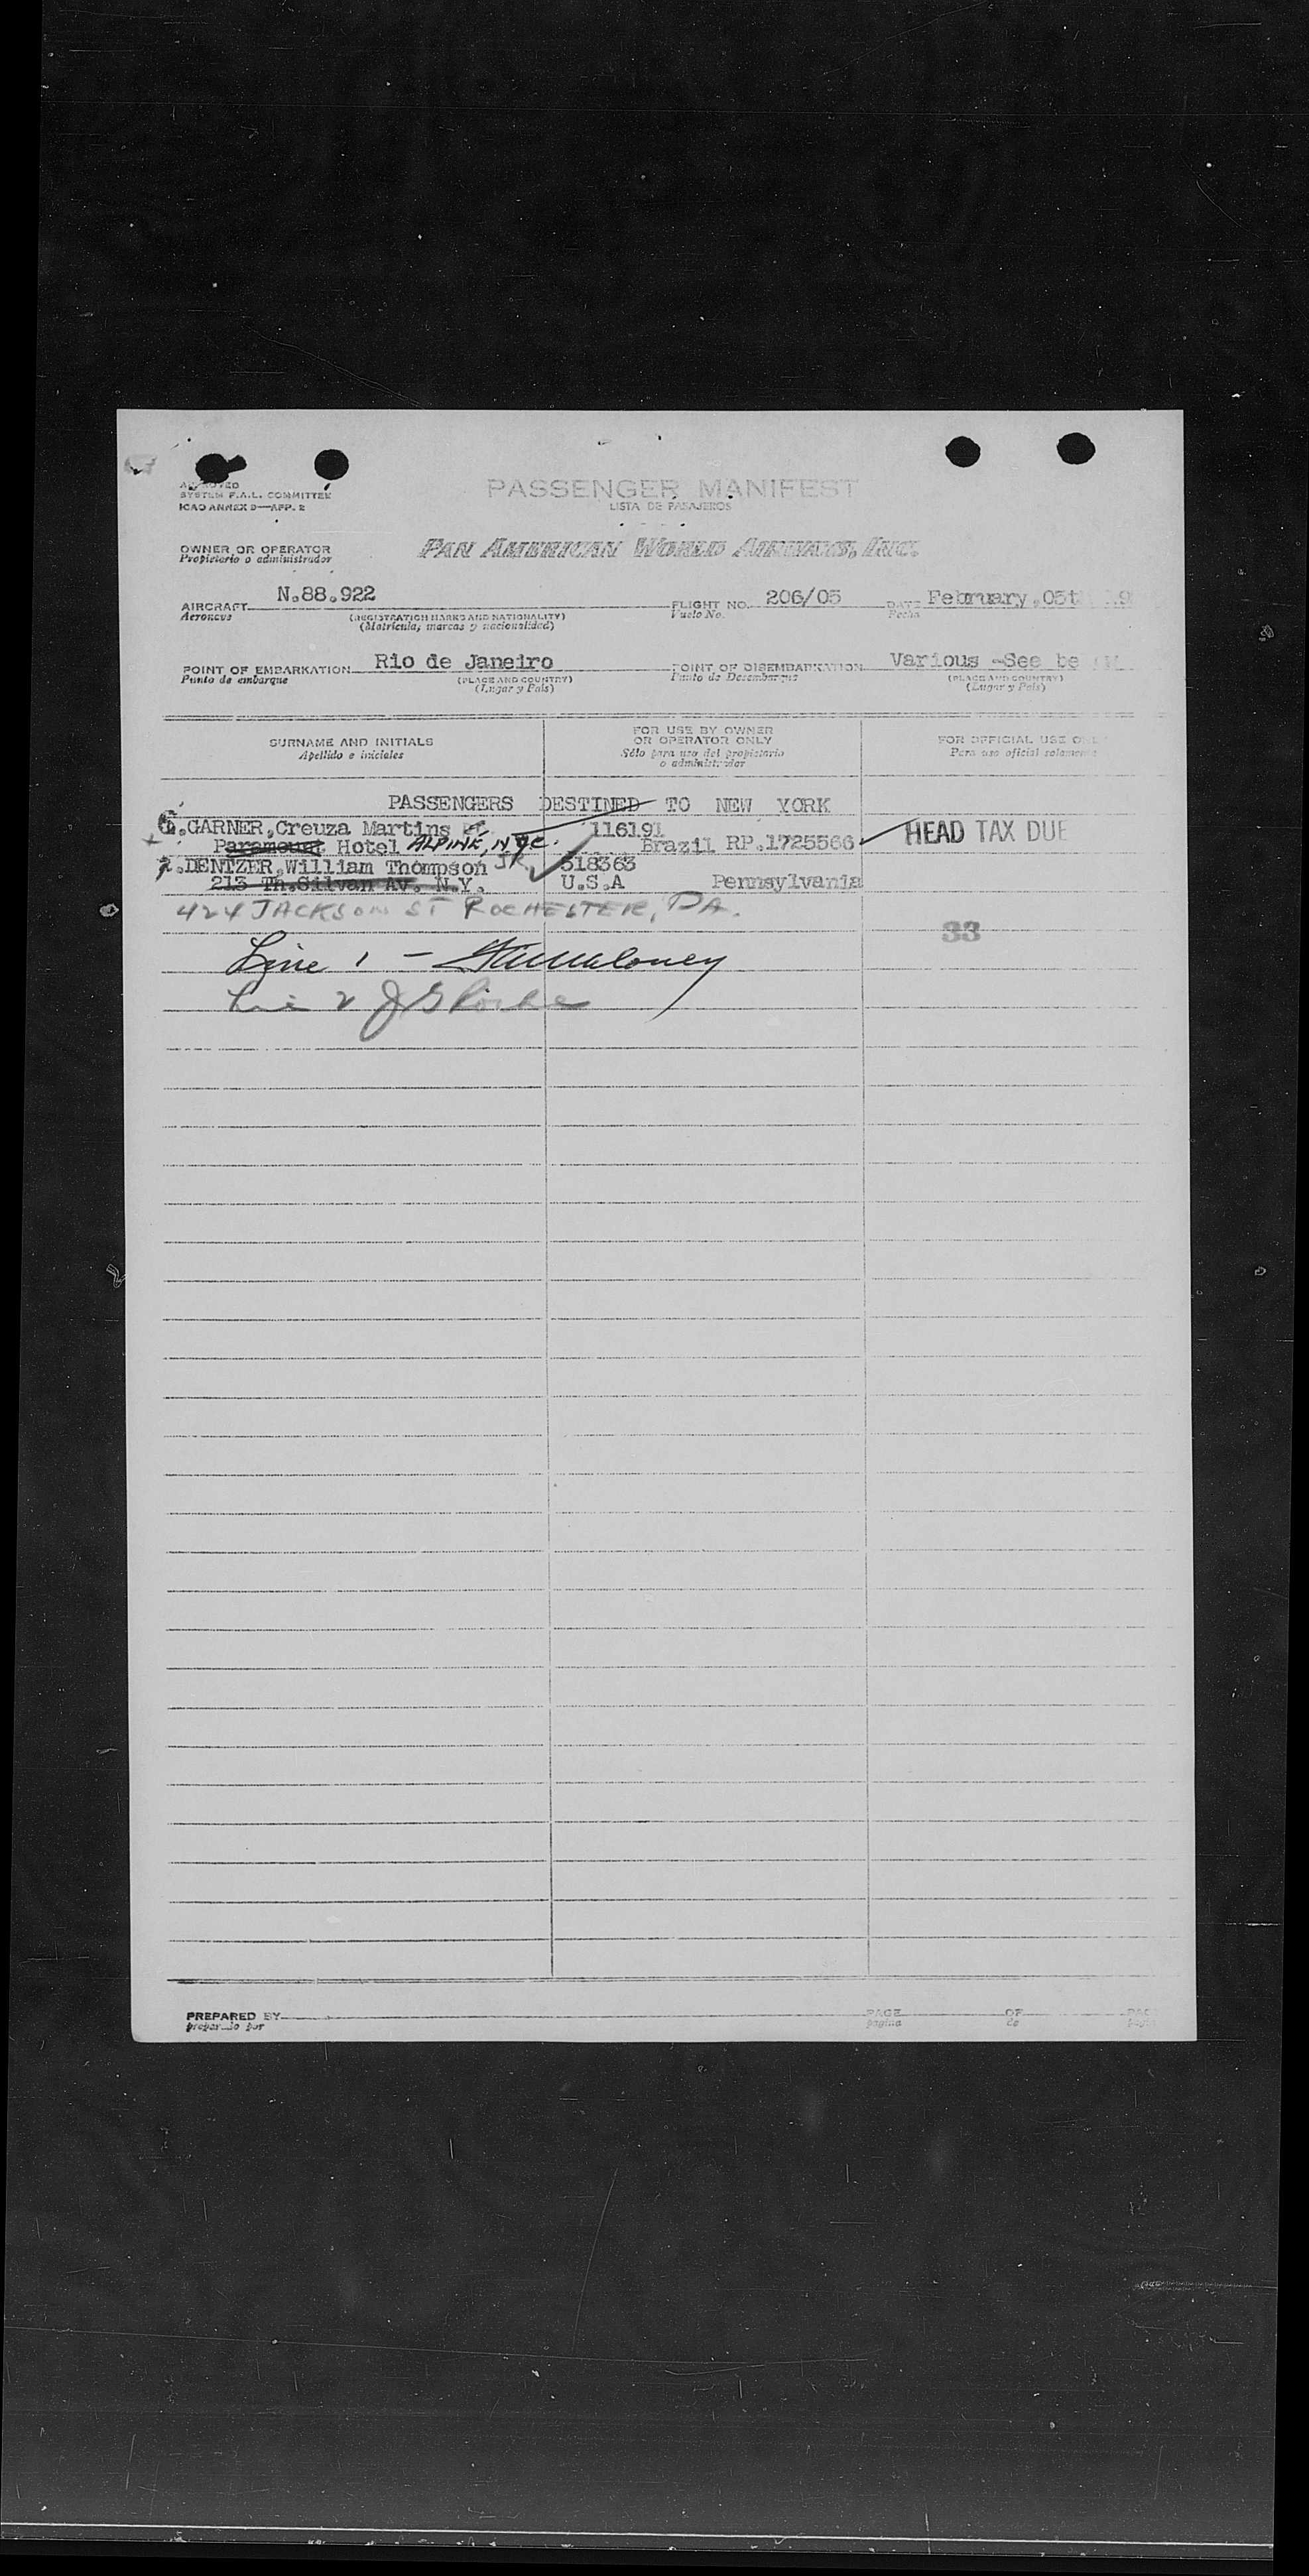 APPROVED
SYSTEM F.A.L. COMMITTEE
ICAO ANNEX 9—APP. 2
PASSENGER MANIFEST
LISTA DE PASAJEROS
OWNER OR OPERATOR
Propietario o administrador
PAN AMERICAN WORLD AIRWAYS, INC.
AIRCRAFT N.88.922 FLIGHT NO. 206/05 DATE February,05t
Aeronave (REGISTRATION MARKS AND NATIONALITY) Vuelo No. Fecha
(Matricula, marcas y nacionalidad)
POINT OF EMBARKATION Rio de Janeiro POINT OF DISEMBARKATION Various -See be
Punto de embarque (PLACE AND COUNTRY) Punto de Desembarque (PLACE AND COUNTRY)
(Lugar y Pais) (Lugar y Pais)
SURNAME AND INITIALS FOR USE BY OWNER OR OPERATOR ONLY FOR OFFICIAL USE ONLY
Apellido e iniciales Sólo para uso del propietario o administrador Para uso oficial solamente
PASSENGERS DESTINED TO NEW YORK
.GARNER,Creuza Martins 116191
Paramount Hotel ALPINE, NYC. Brazil RP.1725566 HEAD TAX DUE
2.DENTZER,William Thompson JR 518363
213 Th.Silvan Av. N.Y. U.S.A Pennsylvania
424 JACKSON ST ROCHESTER, PA.
33
Line 1 - Maloney
Line 2 J
PREPARED BY PAGE OF
preparado por pagina de